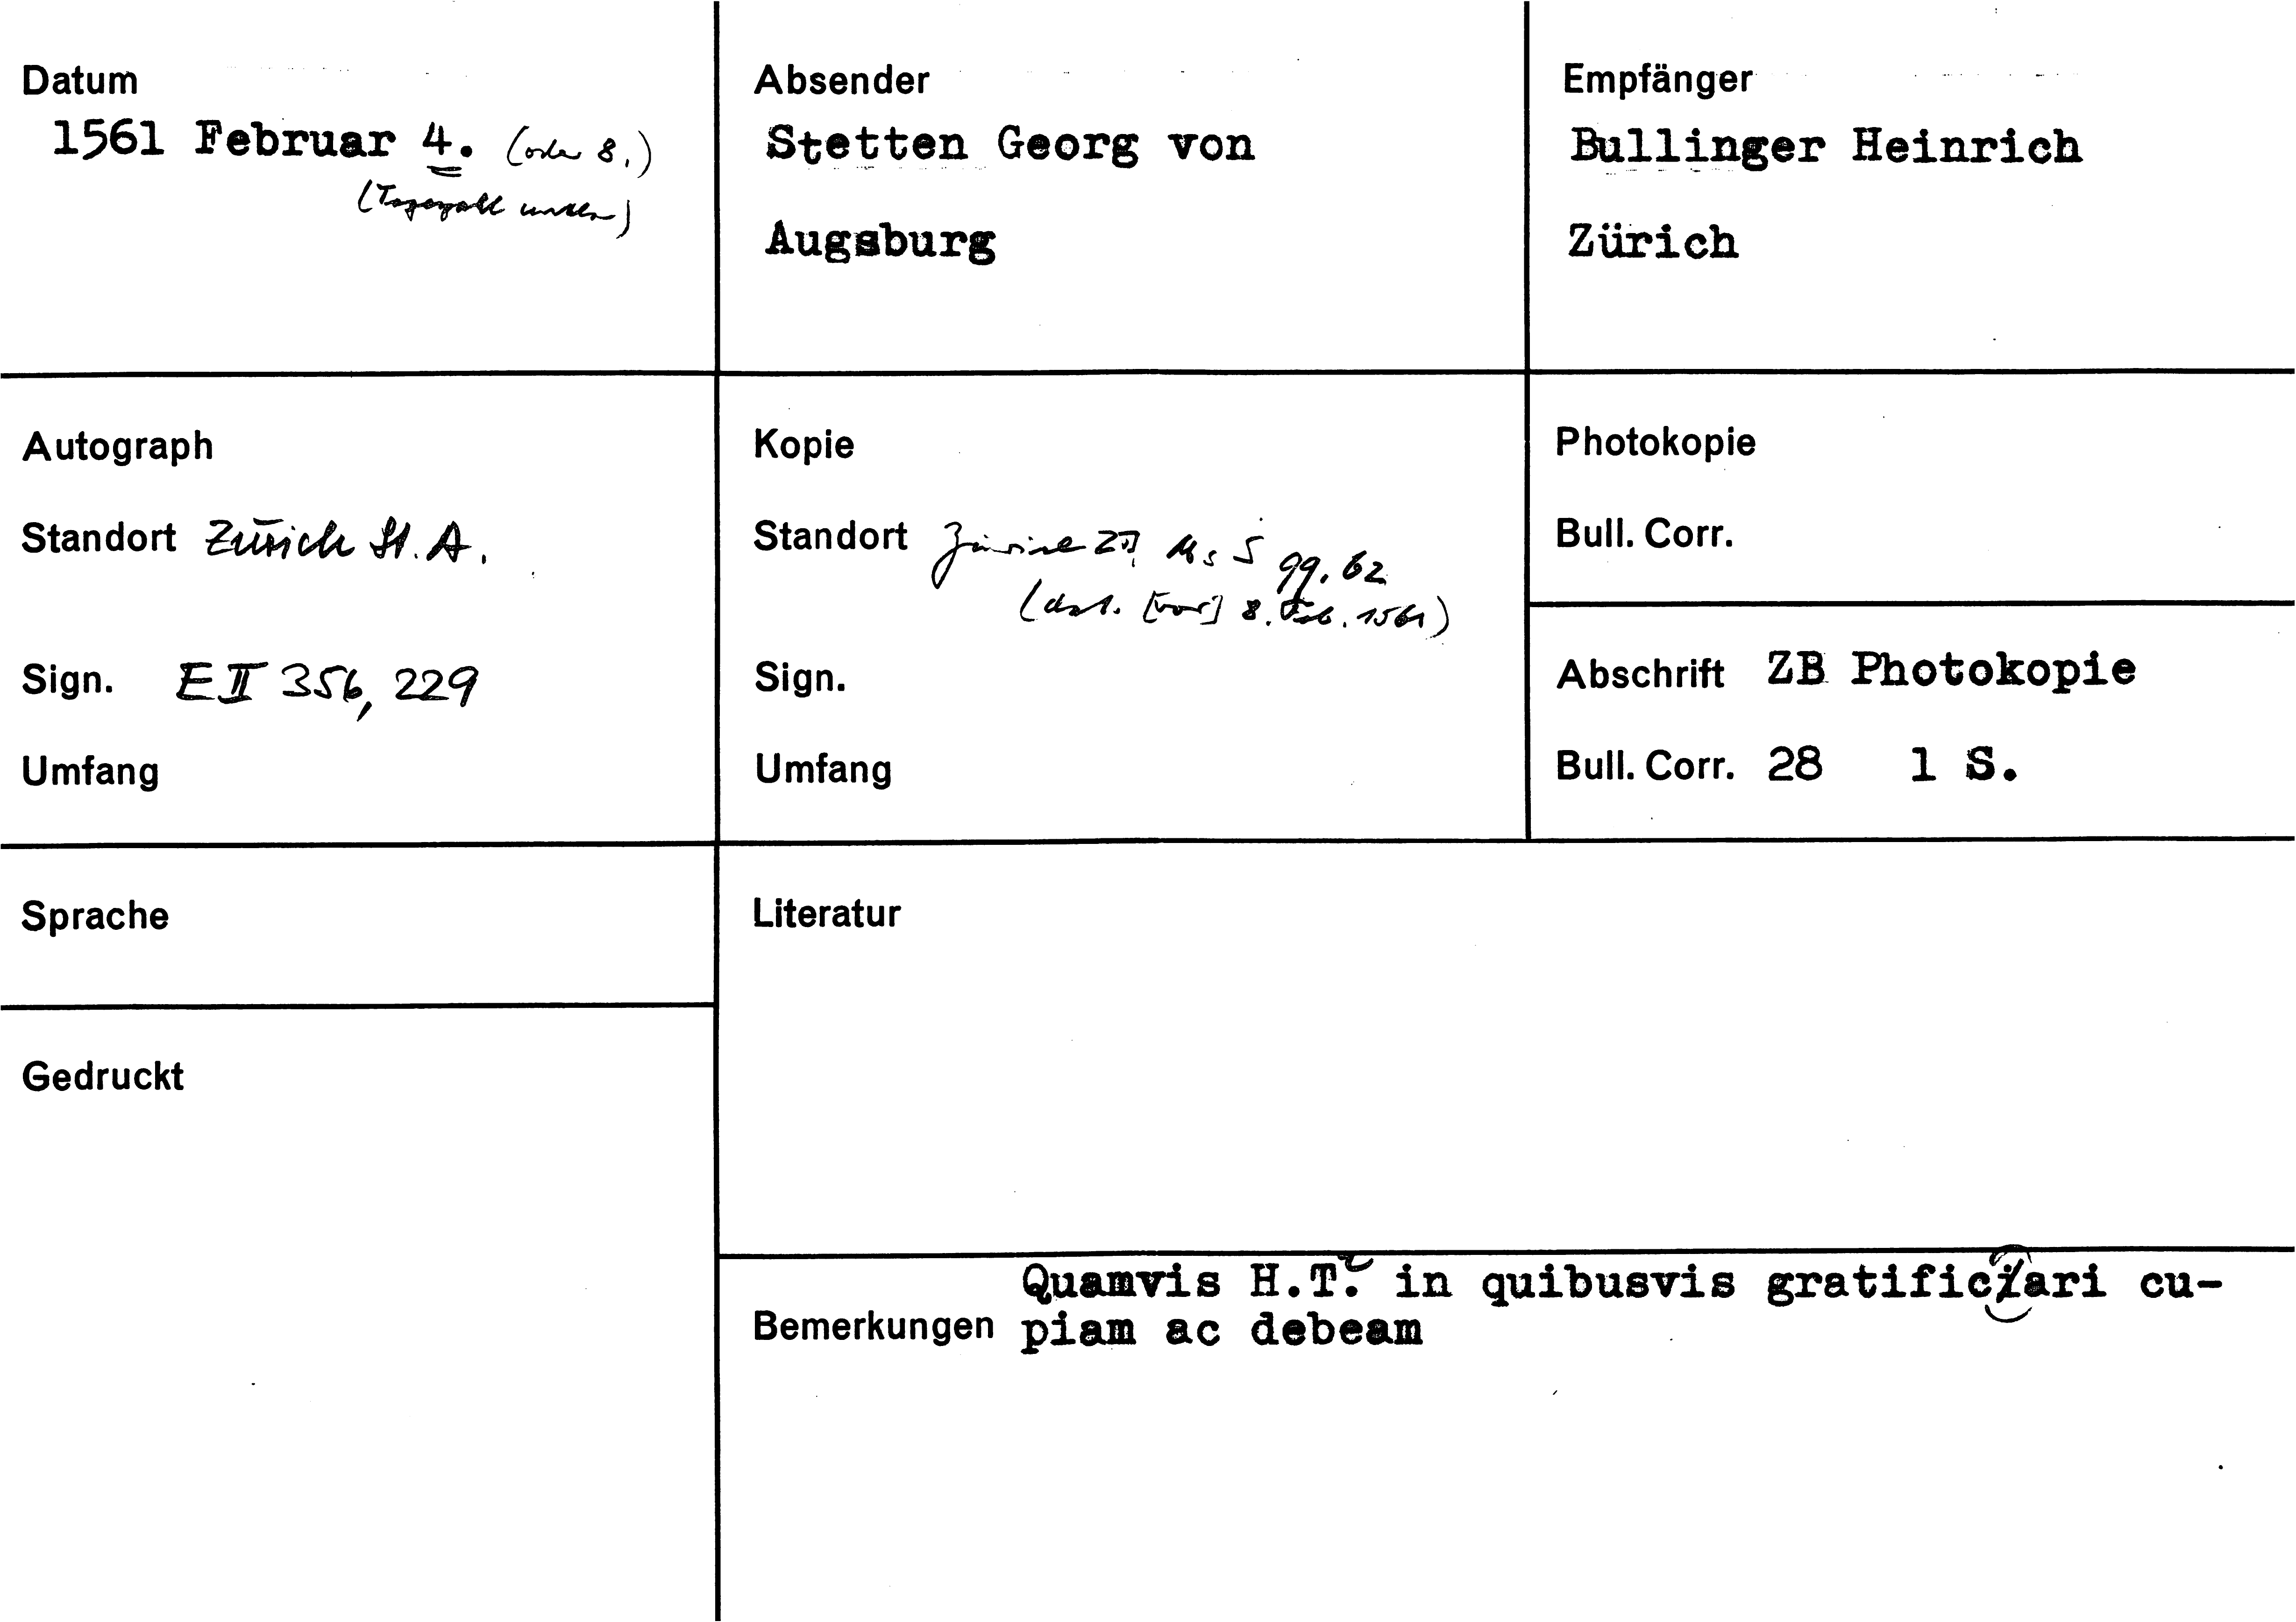 Datum
1561 Februar 4. (oder 8.)
(Tageszahl unklar)
Absender
Stetten Georg von
Augsburg
Empfänger
Bullinger Heinrich
Zürich
Autograph
Standort Zürich St. A.
Sign. E II 356, 229
Umfang
Kopie
Standort Zürich ZB, Ms S 99, 62
(dat. [vor] 8. Feb. 1561)
Sign.
Umfang
Photokopie
Bull. Corr.
Abschrift ZB Photokopie
Bull. Corr. 28 1 S.
Sprache
Gedruckt
Literatur
Bemerkungen
Quamvis H.T. in quibusvis gratificari cu-
piam ac debeam